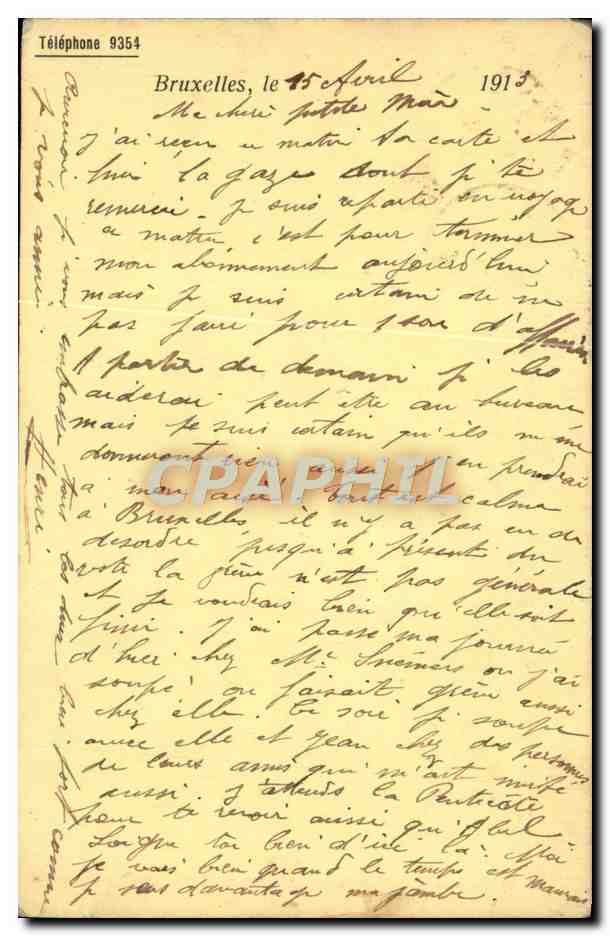 Téléphone 9354
Bruxelles, le 15 Avril 1913
Ma chère petite Mère
J'ai reçu ce matin ta carte et
hier la gaze dont je te
remercie. Je suis reparti en voyage
ce matin c'est pour terminer
mon abonnement aujourd'hui
mais je suis certain de ne
pas faire pour 1 sou d'affaires
A partir de demain je les
aiderai peut être au bureau
mais je suis certain qu'ils ne me
donneront rien aussi j'en prendrai
à mon aise. Tout est calme
à Bruxelles il n'y a pas eu de
desordre jusqu'à présent du
reste la grève n'est pas générale
et je voudrais bien qu'elle soit
finie. J'ai passé ma journée
d'hier chez Me où j'ai
soupé on faisait grève aussi
chez elle. Ce soir je soupe
avec elle et Jean chez des personnes
de leurs amis qui m'ont invité
aussi. J'attends la Pentecôte
pour te revoir ainsi qu'Abel
Soigne toi bien d'ici là. Moi
je vais bien quand le temps est mauvais
je sens davantage ma jambe.
je vous embrasse tous les deux bien fort comme
je vous aime.
Henri
CPAPHIL